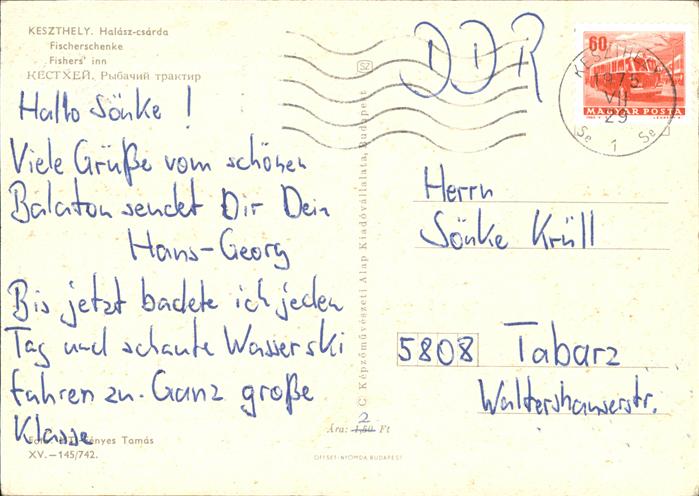 KESZTHELY. Halász-csárda
Fischerschenke
Fishers' inn
КЕСТХЕЙ. Рыбачий трактир
Hallo Sönke !
Viele Grüße vom schönen
Balaton sendet Dir Dein
Hans-Georg
Bis jetzt badete ich jeden
Tag und schaute Wasserski
fahren zu. Ganz große
Klasse
Tamás
XV.—145/742.
SZ
C Képzőművészeti Alap Kiadóvállalata, Budapest
2
Ára: 1,50 Ft
OFFSET-NYOMDA BUDAPEST
DDR
60
MAGYAR POSTA
KESZTHELY
1975
VII
29
Se 1 Se
Herrn
Sönke Krüll
5808 Tabarz
Waltershauserstr.